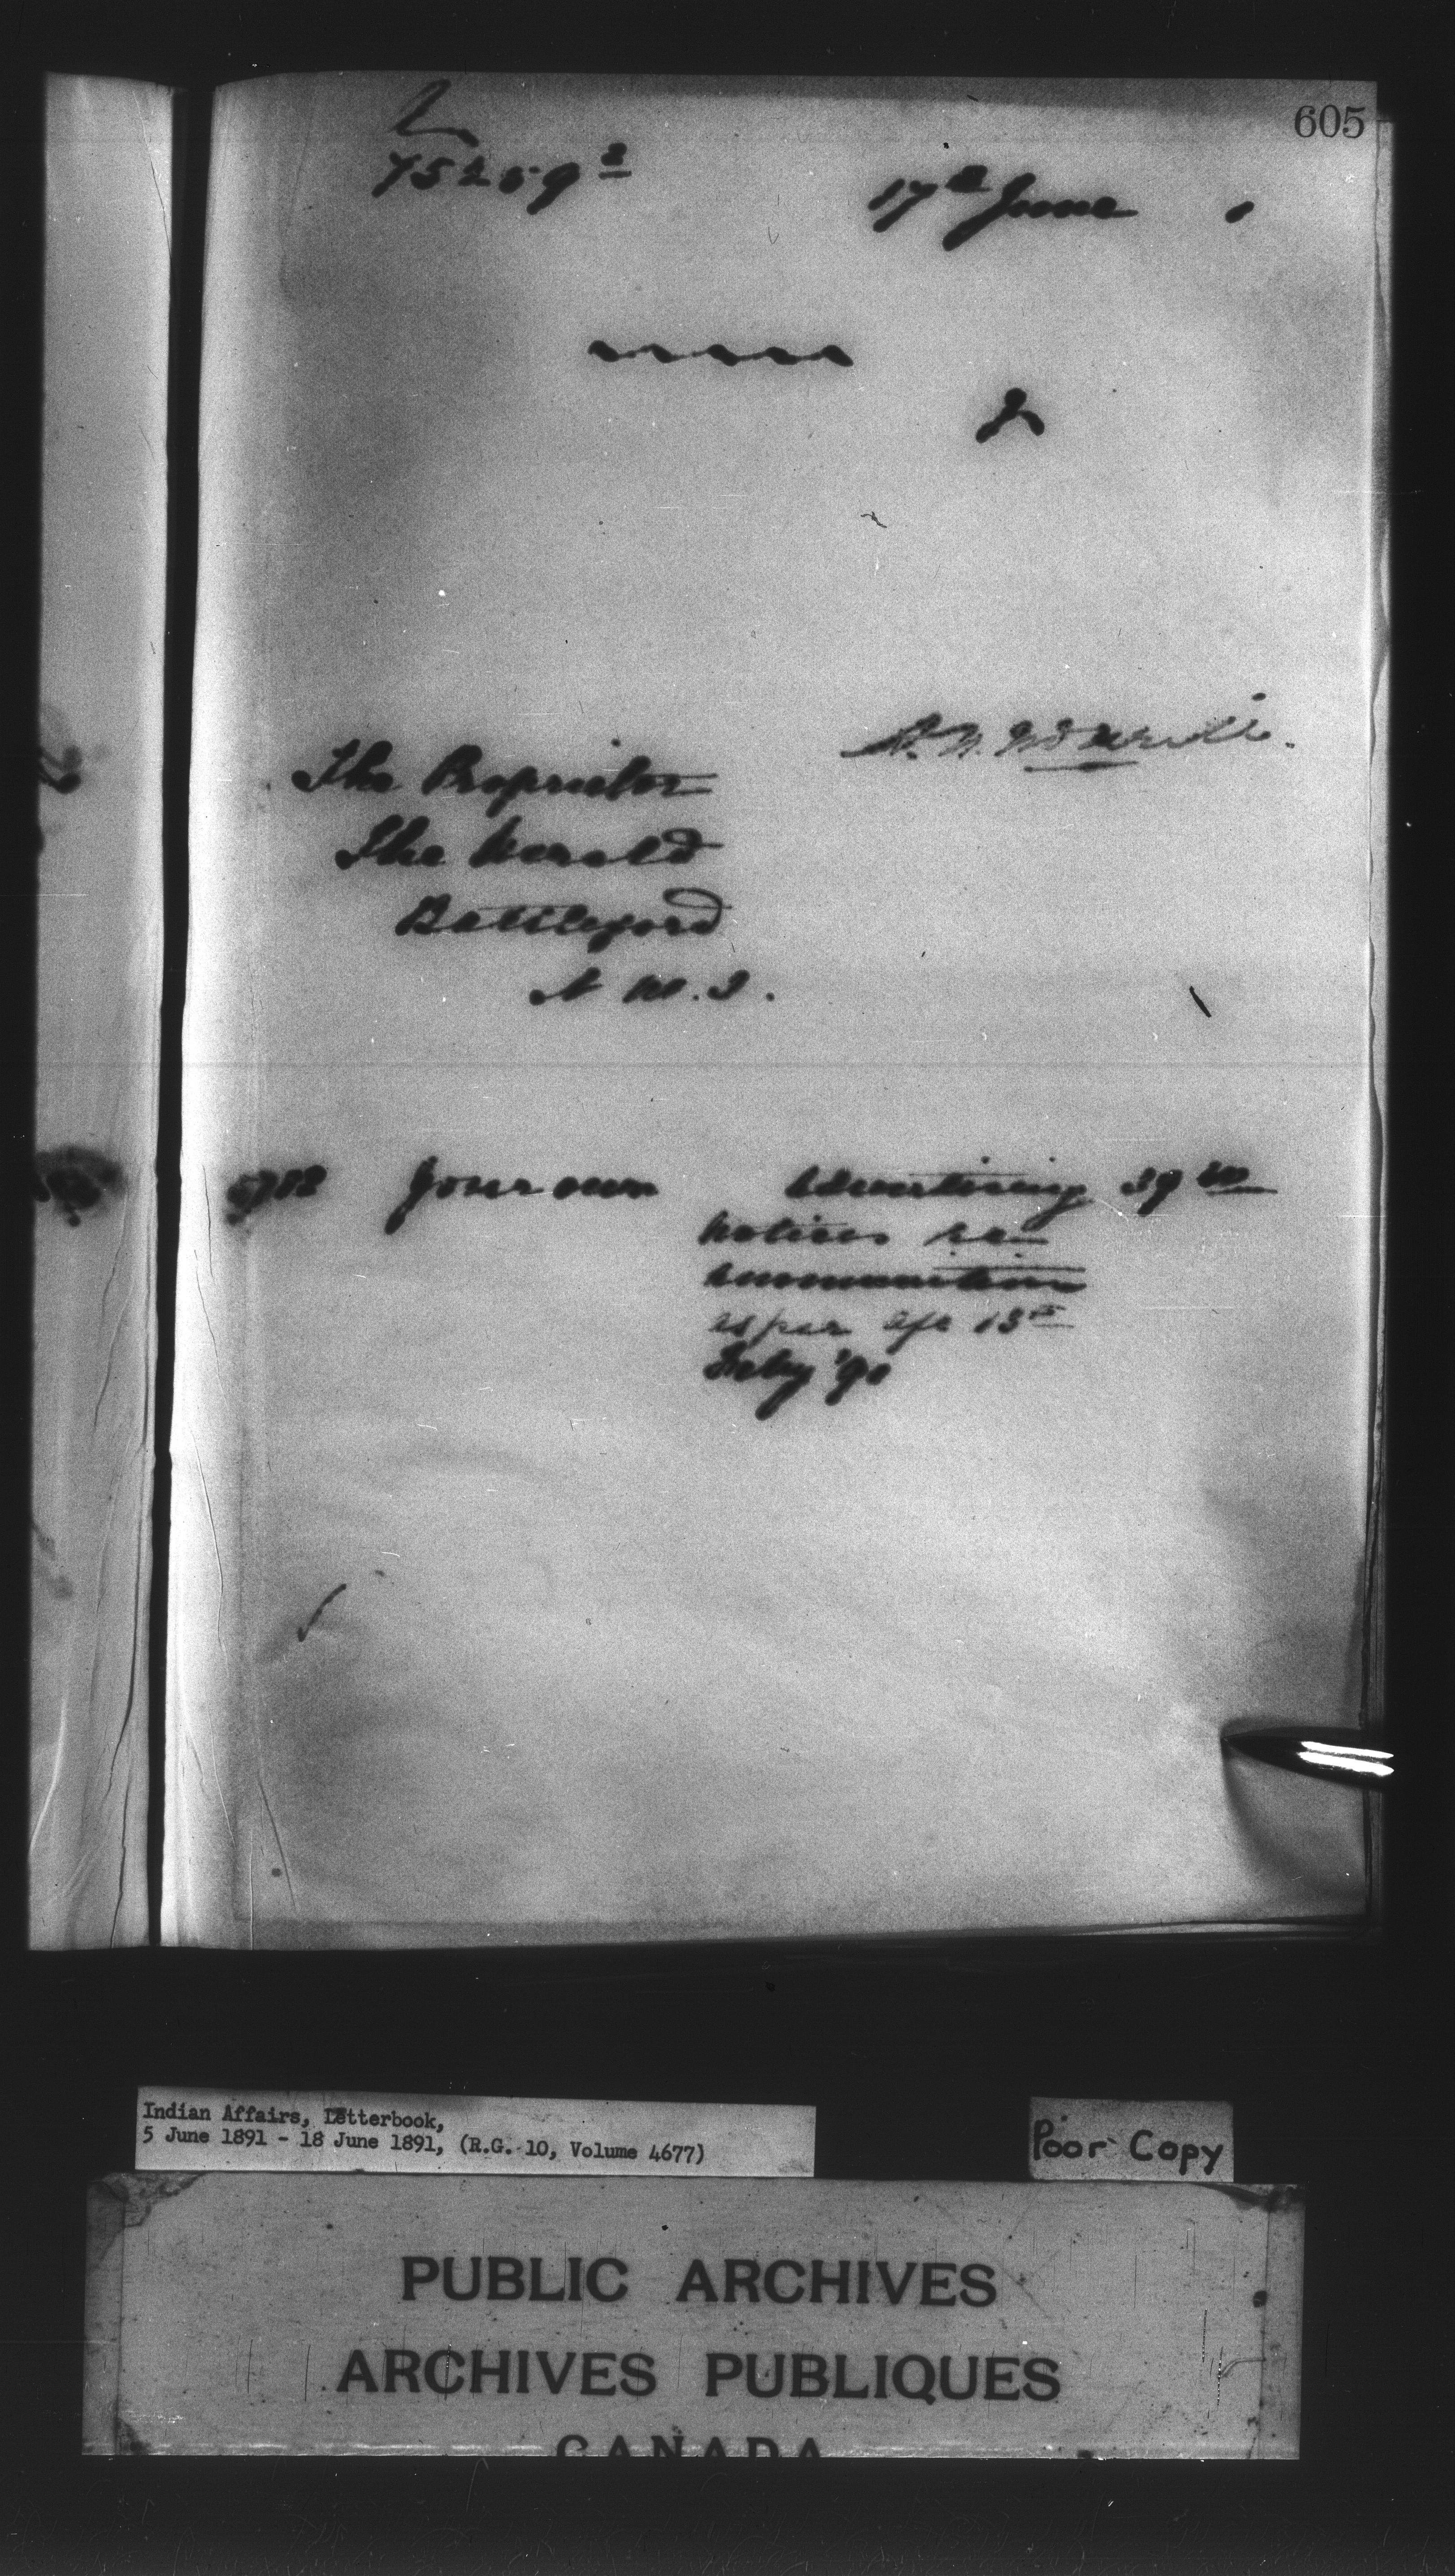 605
L
75259²
17th June 1
The Proprietor
The Herald
Battleford
N W. T.
5788 Your own Advertising 39 00
notices re
ammunition
as per a/c 13th
Feby '90
Indian Affairs, Letterbook,
5 June 1891 - 18 June 1891, (R.G. 10, Volume 4677)
Poor Copy
PUBLIC ARCHIVES
ARCHIVES PUBLIQUES
CANADA